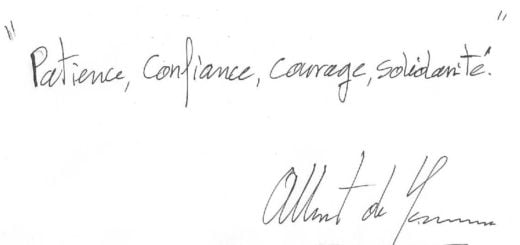 "Patience, Confiance, courage, solidarité."
Albert de